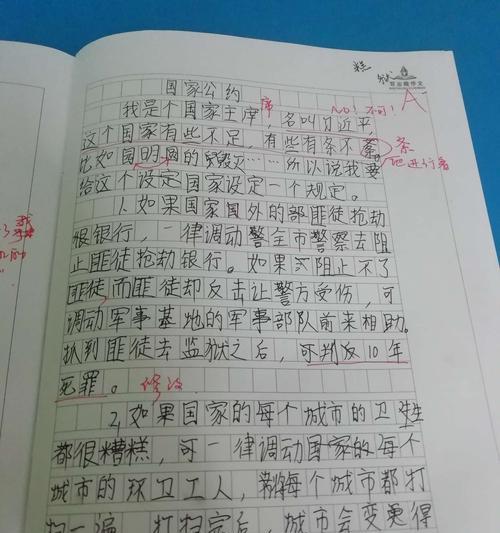 糕 狱
A
国家公约
我是个国家主席,名叫习近平,
席 No! 不可!
这个国家有些不足,有些有条不紊。
紊
比如园明园的毁灭……所以说我要
他进行着
给这个设定国家设定一个规定。
1、如果国家国外的部匪徒抢劫
银银行,一律调动警全市警察去阻
止匪徒抢劫银行。如果不阻止不了
匪徒,而匪徒却反击让警方受伤,可
调动军事基地的军事部队前来相助。
抓到匪徒去监狱之后,可判反10年
死罪。修改
2、如果国家的每个城市的卫生
都很糟糕,可一律调动国家的每个
城市的环卫工人,每个城市都打
扫一遍。打扫完后,城市会变更得